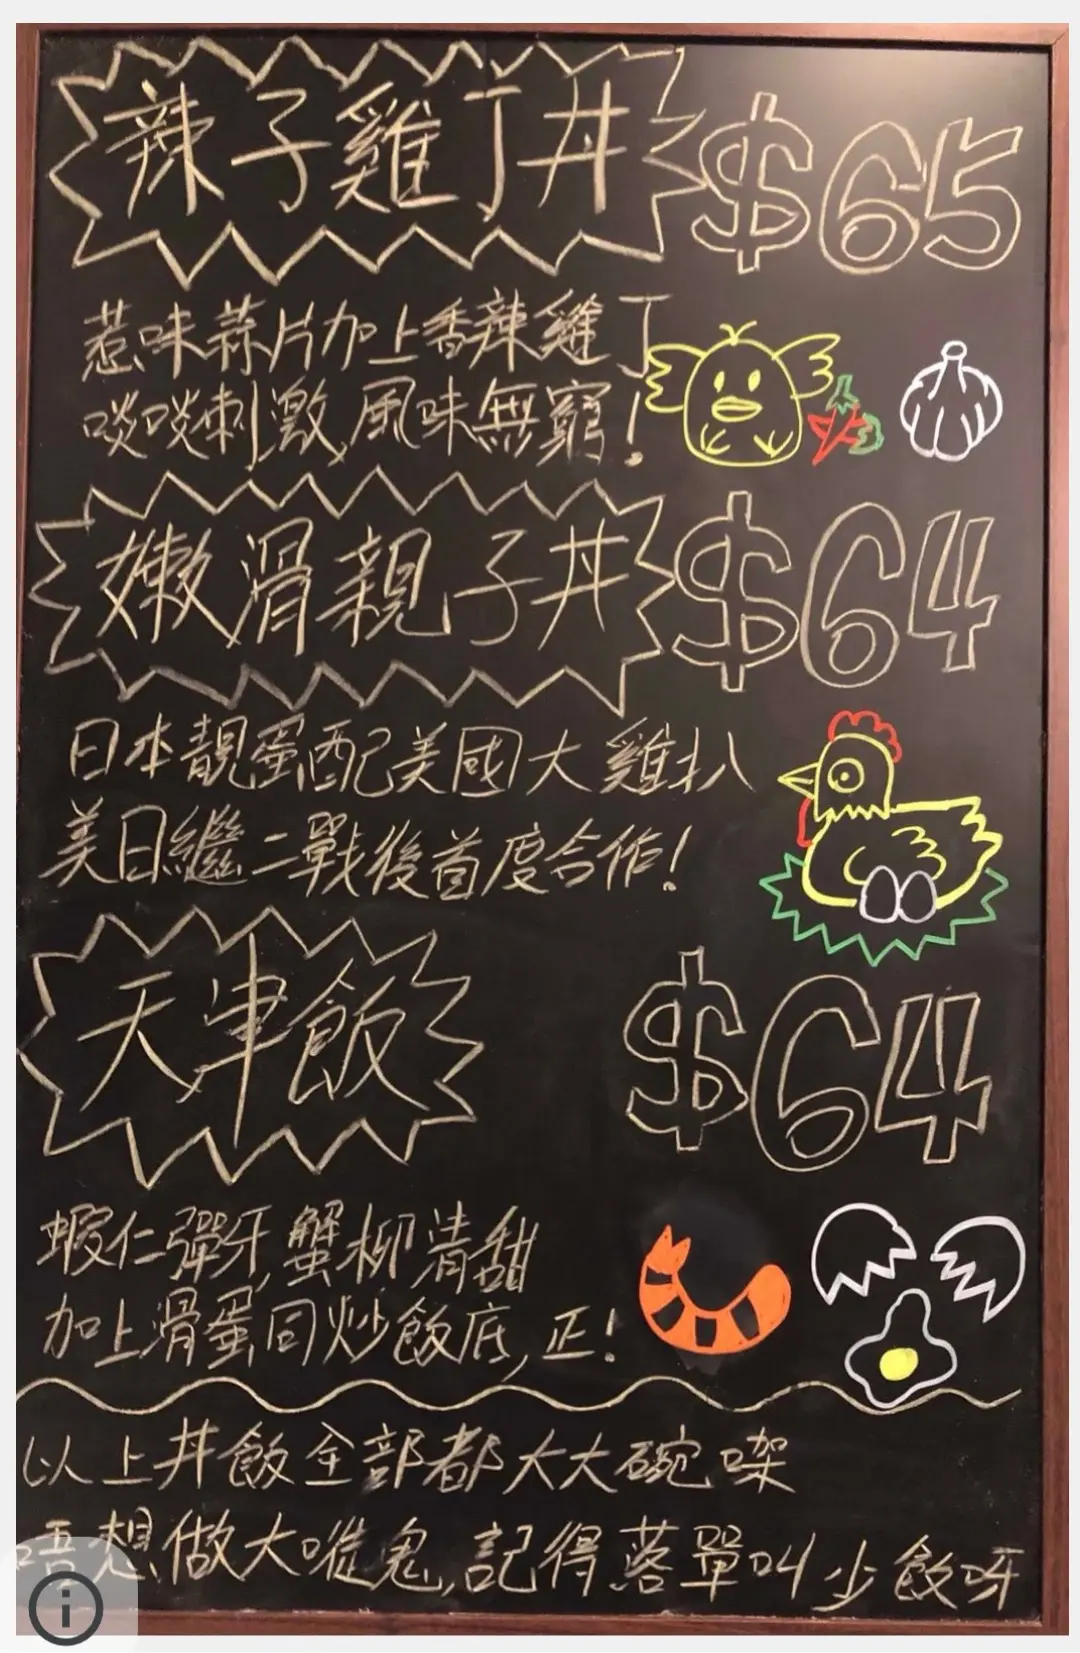 辣子雞丁丼 $65
惹味蒜片加上香辣雞丁
啖啖刺激,風味無窮!
嫩滑親子丼 $64
日本靚蛋配美國大雞扒
美日繼二戰後首度合作!
天津飯 $64
蝦仁彈牙,蟹柳清甜
加上滑蛋同炒飯底,正!
以上丼飯全部都大大碗㗎
唔想做大嘥鬼,記得落單叫少飯呀